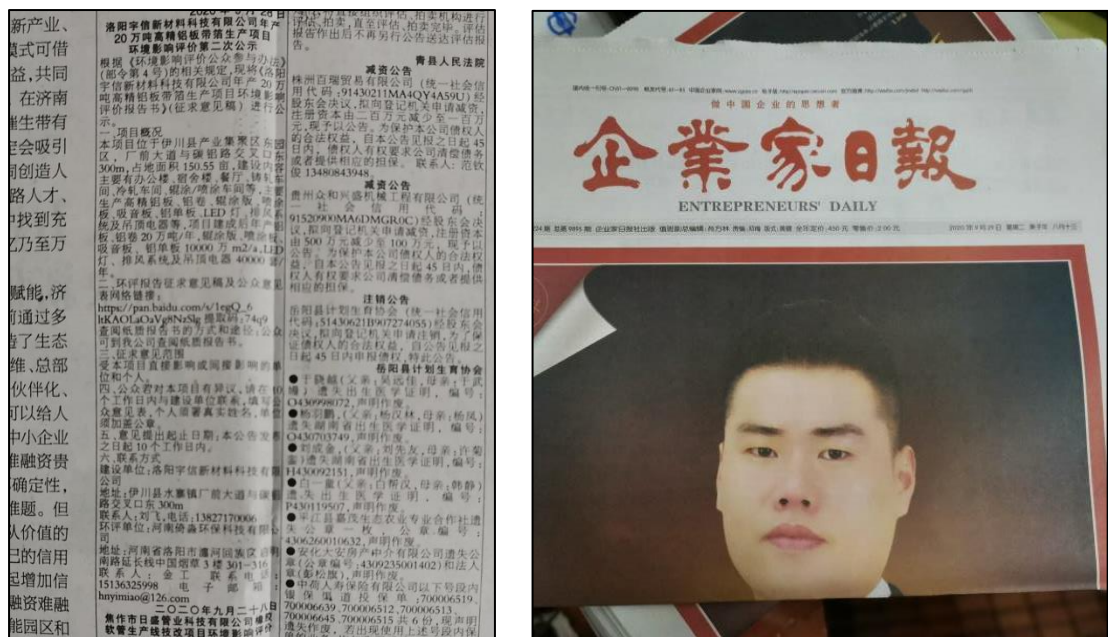 新产业、
模式可借
益,共同
在济南
催生带有
定会吸引
同创造人
路人才、
中找到充
乃至万
赋能,济
前通过多
造了生态
维、总部
伙伴化、
可以给人
中小企业
准融资贵
确定性,
难题。但
从价值的
己的信用
起增加信
融资难融
能园区和
洛阳宇信新材料科技有限公司年产
20万吨高精铝板带箔生产项目
环境影响评价第二次公示
根据《环境影响评价公众参与办法》
(部令第4号)的相关规定,现将《洛阳
宇信新材料科技有限公司年产20万
吨高精铝板带箔生产项目环境影响
评价报告书》(征求意见稿)进行公
示。
一、项目概况
本项目位于伊川县产业集聚区东园
区,厂前大道与碳铝路交叉口东
300m,占地面积150.55亩,建设内容
主要有办公楼、宿舍楼、餐厅、铸轧车
间、冷轧车间、辊涂/喷涂车间等,主要
生产高精铝板、铝卷、辊涂版、喷涂
板、吸音板、铝单板、LED灯、排风系
统及吊顶电器等,项目建成后年产铝
板、铝卷20万吨/年,辊涂版、喷涂板、
吸音板、铝单板10000万m2/a,LED
灯、排风系统及吊顶电器40000套/
年。
二、环评报告征求意见稿及公众意见
表网络链接:
https://pan.baidu.com/s/1egQ_6
ltKAOLaOaVg8NzSlg 提取码:74q9
查阅纸质报告书的方式和途径:公众
可到我公司查阅纸质报告书。
三、征求意见范围
受本项目直接影响或间接影响的单
位和个人。
四、公众若对本项目有异议,请在10
个工作日内与建设单位联系,填写公
众意见表,个人须署真实姓名,单位
须加盖公章。
五、意见提出起止日期:本公告发布
之日起10个工作日内。
六、联系方式
建设单位:洛阳宇信新材料科技有限
公司
地址:伊川县水寨镇厂前大道与碳铝
路交叉口东300m
联系人:刘飞,电话:13827170006
环评单位:河南倚淼环保科技有限公
司
地址:河南省洛阳市瀍河回族区启明
南路延长线中国烟草3楼301-316
联系人:金工 联系电话:
15136325998 电子邮箱:
hnyimiao@126.com
二〇二〇年九月二十八日
焦作市日盛管业科技有限公司橡胶
软管生产线技改项目环境影响评价
评估、拍卖,直至评估、拍卖完毕。评估
报告作出后不再另行公告送达评估报
告。
青县人民法院
减资公告
株洲百瑞贸易有限公司(统一社会信
用代码:91430211MA4QY4A59U)经
股东会决议,拟向登记机关申请减资,
注册资本由二百万元减少至一百万
元,现予以公告。为保护本公司债权人
的合法权益,自本公告见报之日起45
日内,债权人有权要求公司清偿债务
或者提供相应的担保。联系人:范钦
俊 13480843948。
减资公告
贵州众和兴盛机械工程有限公司(统
一社会信用代码:
91520900MA6DMGR0C)经股东会决
议,拟向登记机关申请减资,注册资本
由500万元减少至100万元,现予以
公告。为保护本公司债权人的合法权
益,自本公告见报之日起45日内,债
权人有权要求公司清偿债务或者提供
相应的担保。
注销公告
岳阳县计划生育协会(统一社会信用
代码:51430621B907274055)经股东会
决议,拟向登记机关申请注销,为了保
证债权人的合法权益,自公告见报之
日起45日内申报债权,特此公告。
岳阳县计划生育协会
●于晓樾(父亲:吴远佳,母亲:于武
嫚)遗失出生医学证明,编号:
O430998072,声明作废。
●杨羽鹏,(父亲:杨汉林,母亲:杨凤)
遗失湖南省出生医学证明,编号:
O430703749,声明作废。
●刘成金,(父亲:刘先友,母亲:许菊
)遗失湖南省出生医学证明,编号:
H430092151,声明作废。
●白一童(父亲:白帮汉,母亲:韩静)
遗失出生医学证明,编号:
P430119507,声明作废。
●平江县嘉茂生态农业专业合作社遗
失公章一枚,公章编号:
4306260010632,声明作废。
●安化大安房产中介有限公司遗失公
章(公章编号:4309235001402)和法人
章(彭松旗),声明作废。
●中荷人寿保险有限公司以下号段内
银保渠道投保单:700006519、
700006639、700006512、700006513、
700006645、700006515共6份,现声明
遗失作废,若出现使用上述号段内保
做中国企业的思想者
企業家日報
ENTREPRENEURS' DAILY
224期 总第9895期 企业家日报社出版 值班副总编辑:肖方林 全年定价:450元 零售价:2.00元
2020年9月29日 星期二 庚子年 八月十三